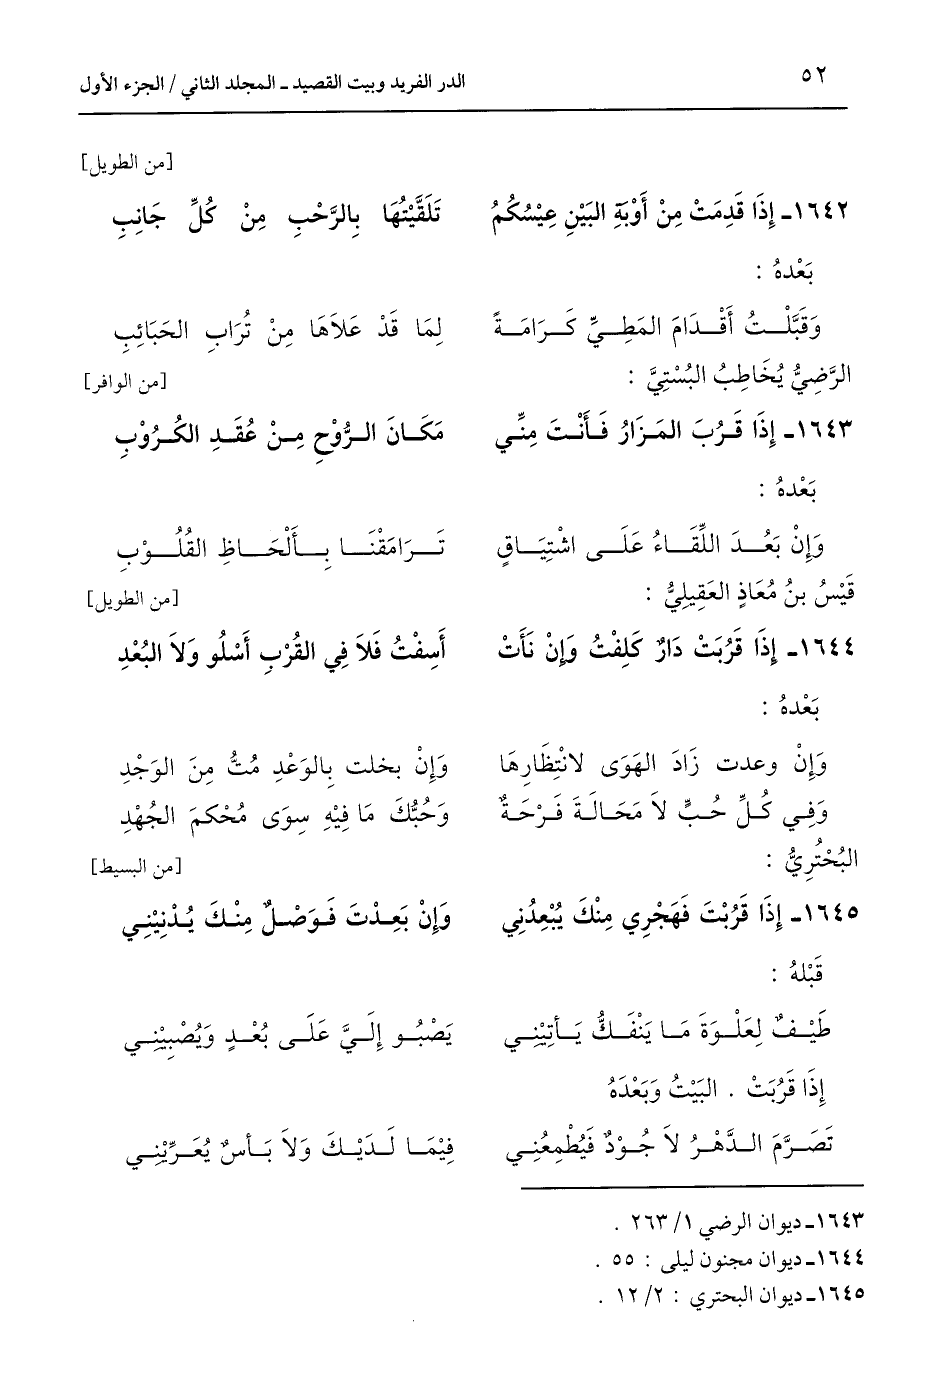 ٥٢ الدر الفريد وبيت القصيد ـ المجلد الثاني / الجزء الأول
[من الطويل]
١٦٤٢ـ إِذَا قَدِمَتْ مِنْ أَوْبَةِ البَيْنِ عِيْسُكُمُ تَلَقَّيْتُهَا بِالرَّحْبِ مِنْ كُلِّ جَانِبِ
بَعْدهُ :
وَقَبَّلْتُ أَقْدَامَ المَطِيِّ كَرَامَةً لِمَا قَدْ عَلاَهَا مِنْ تُرَابِ الحَبَائِبِ
الرَّضِيُّ يُخَاطِبُ البُسْتِيَّ : [من الوافر]
١٦٤٣ـ إِذَا قَرُبَ المَزَارُ فَأَنْتَ مِنِّي مَكَانَ الرُّوْحِ مِنْ عُقَدِ الكُرُوْبِ
بَعْدهُ :
وَإِنْ بَعُدَ اللِّقَاءُ عَلَى اشْتِيَاقٍ تَرَامَقْنَا بِأَلْحَاظِ القُلُوْبِ
قَيْسُ بنُ مُعَاذٍ العَقِيلِيُّ : [من الطويل]
١٦٤٤ـ إِذَا قَرُبَتْ دَارٌ كَلِفْتُ وَإِنْ نَأَتْ أَسِفْتُ فَلاَ فِي القُرْبِ أَسْلُو وَلاَ البُعْدِ
بَعْدهُ :
وَإِنْ وعدت زَادَ الهَوَى لانْتِظَارِهَا وَإِنْ بخلت بِالوَعْدِ مُتُّ مِنَ الوَجْدِ
وَفِي كُلِّ حُبٍّ لاَ مَحَالَةَ فَرْحَةٌ وَحُبُّكَ مَا فِيْهِ سِوَى مُحْكمَ الجُهْدِ
البُحْتُرِيُّ : [من البسيط]
١٦٤٥ـ إِذَا قَرُبْتَ فَهَجْرِي مِنْكَ يُبْعِدُنِي وَإِنْ بَعِدْتَ فَوَصْلٌ مِنْكَ يُدْنِيْنِي
قَبْلهُ :
طَيْفٌ لِعَلْوَةَ مَا يَنْفَكُّ يَأتِيْنِي يَصْبُو إِلَيَّ عَلَى بُعْدٍ وَيُصْبِيْنِي
إِذَا قَرُبَتْ . البَيْتُ وَبَعْدَهُ
تَصَرَّمَ الدَّهْرُ لاَ جُوْدٌ فَيُطْمِعُنِي فِيْمَا لَدَيْكَ وَلاَ يَأسٌ يُعَزِّيْنِي
١٦٤٣ـ ديوان الرضي ١/ ٢٦٣ .
١٦٤٤ـ ديوان مجنون ليلى : ٥٥ .
١٦٤٥ـ ديوان البحتري : ٢/ ١٢ .